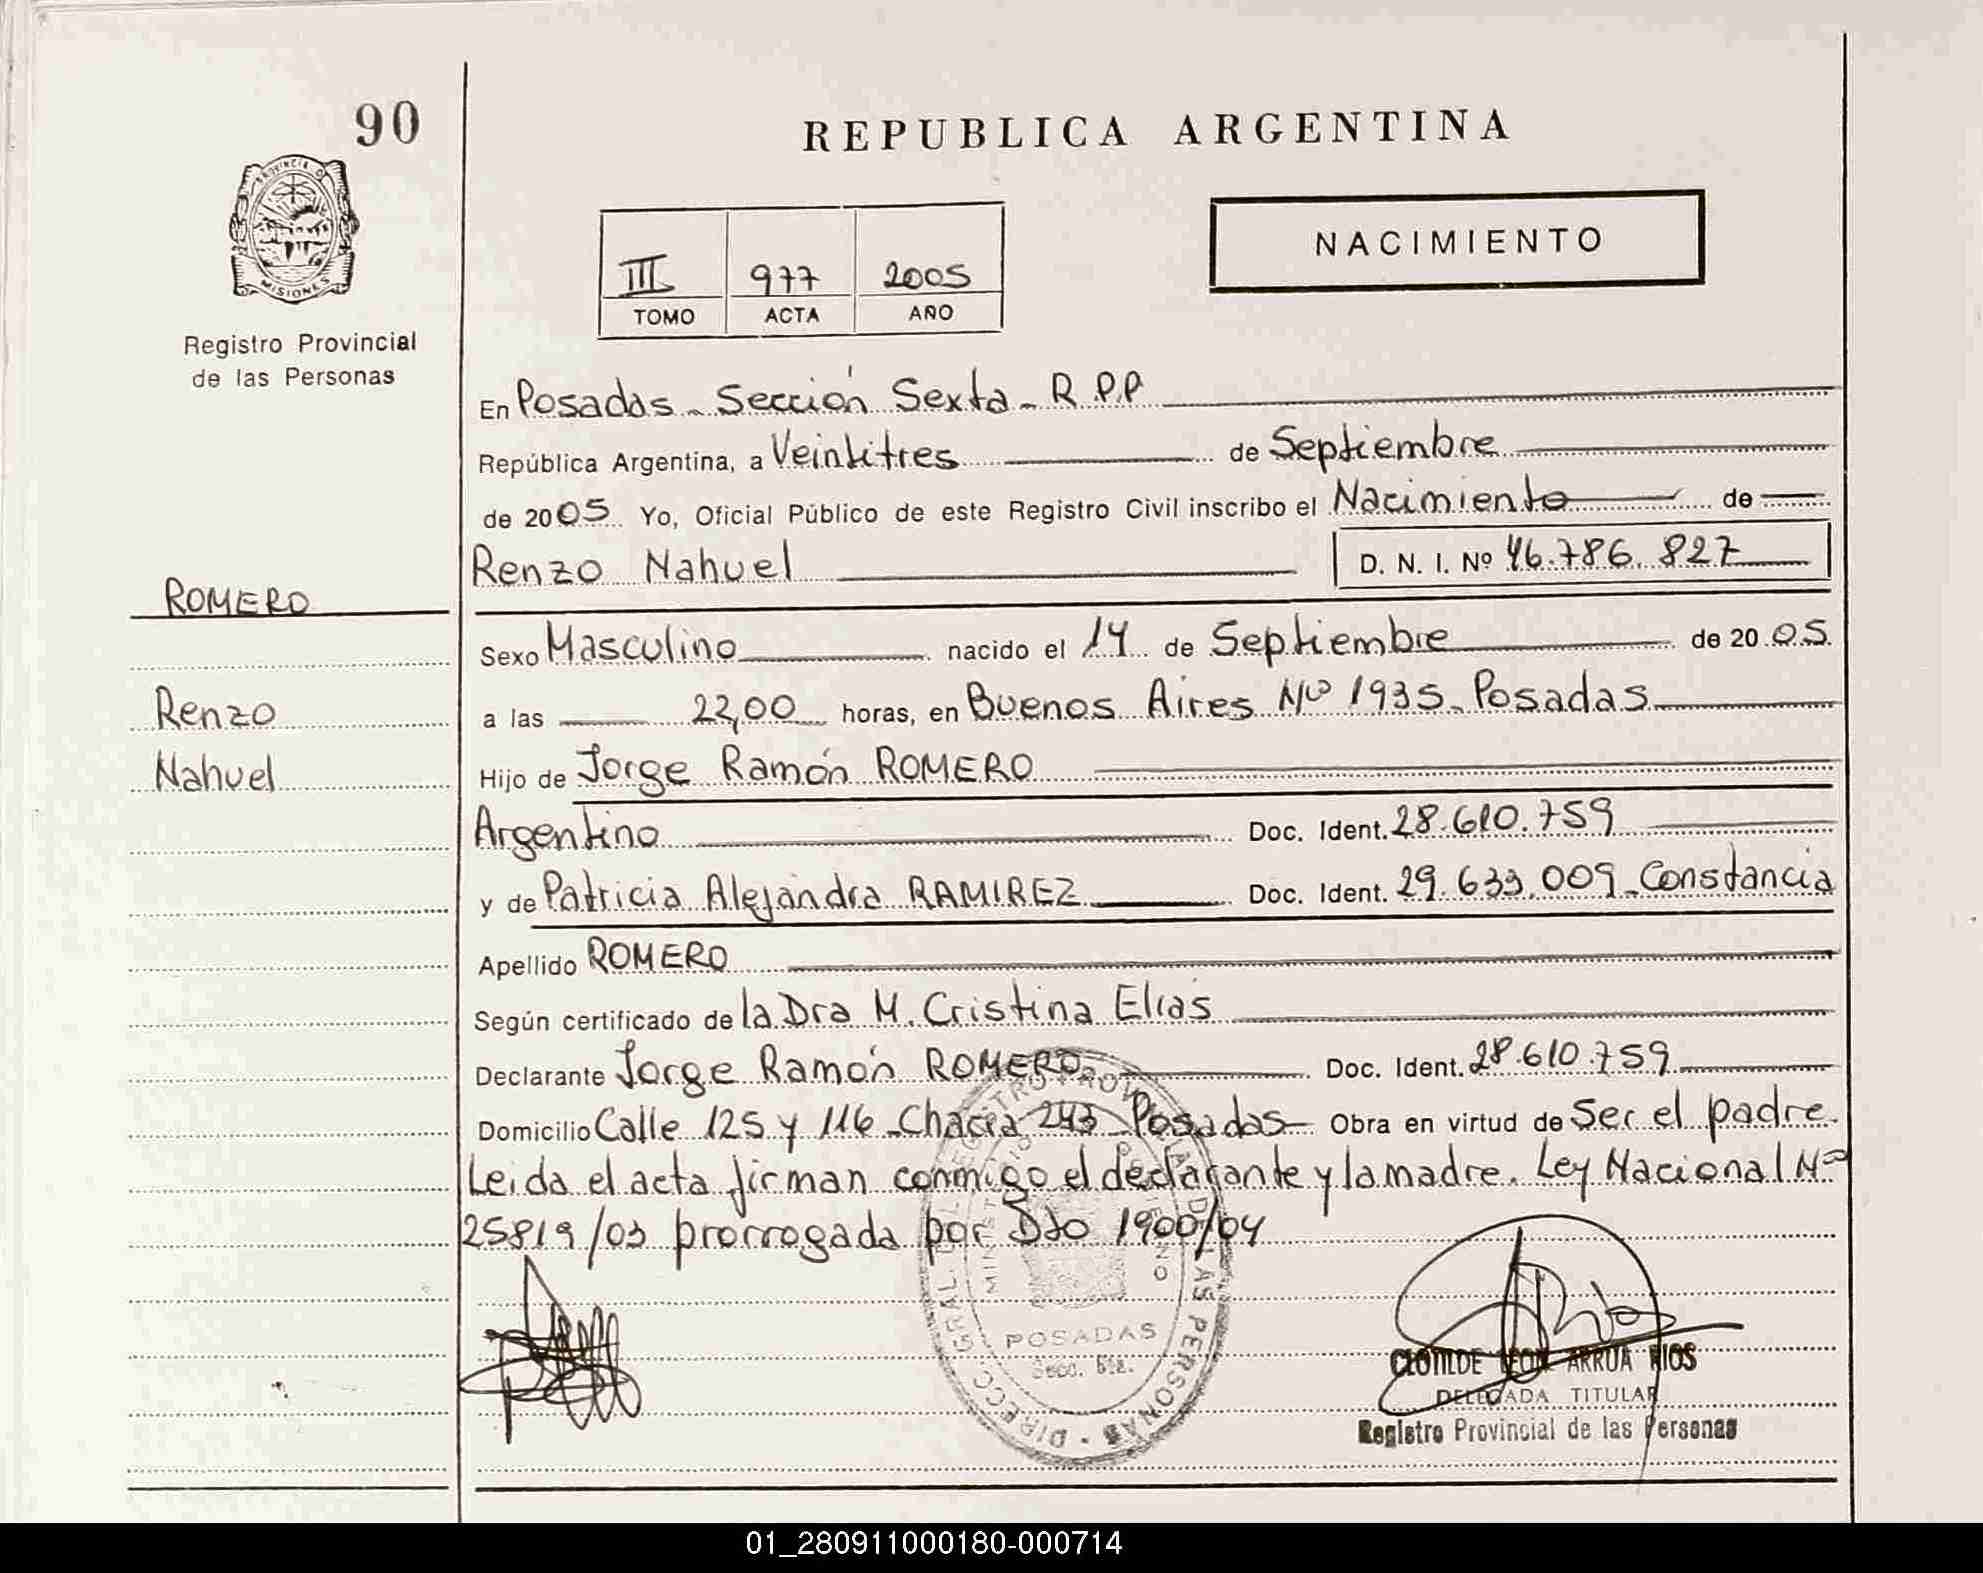 90
REPUBLICA ARGENTINA
PROVINCIA D
MISIONES
Registro Provincial
de las Personas
III 977 2005
TOMO ACTA AÑO
NACIMIENTO
En Posadas - Sección Sexta - R.P.P
República Argentina, a Veintitres de Septiembre
de 2005 Yo, Oficial Público de este Registro Civil inscribo el Nacimiento de
Renzo Nahuel D. N. I. Nº 46.786.827
ROMERO
Sexo Masculino nacido el 14 de Septiembre de 2005.
Renzo
a las 22,00 horas, en Buenos Aires Nº 1935 - Posadas
Nahuel
Hijo de Jorge Ramón ROMERO
Argentino Doc. Ident. 28.610.759
y de Patricia Alejandra RAMIREZ Doc. Ident. 29.633.009 - Constancia
Apellido ROMERO
Según certificado de la Dra M. Cristina Elías
Declarante Jorge Ramón ROMERO Doc. Ident. 28.610.759
Domicilio Calle 125 y 116 - Chacra 243 - Posadas - Obra en virtud de Ser el padre.
Leida el acta firman conmigo el declarante y la madre. Ley Nacional Nº
25819/03 prorrogada por Dto 1900/04
POSADAS
Secc. 6ta.
CLOTILDE LEON ARRUA RIOS
DELEGADA TITULAR
Registro Provincial de las Personas
01_280911000180-000714